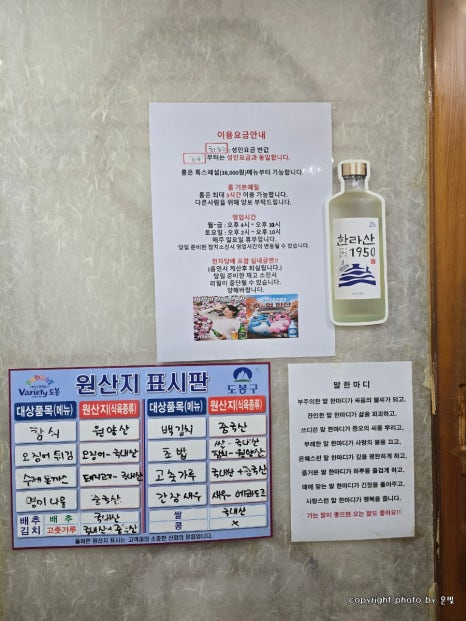 이용요금안내
: 성인요금 반값
부터는 성인요금과 동일합니다.
룸은 특스페셜(38,000원)메뉴부터 가능합니다
룸 기본예절
룸은 최대 3시간 이용 가능합니다.
다른사람을 위해 양보 부탁드립니다.
영업시간
월~금 : 오후 4시 ~ 오후 10시
토요일 : 오후 2시 ~ 오후 10시
매주 일요일 휴무입니다.
당일 준비한 참치소진시 영업시간이 변동될 수 있습니다.
전자담배 포함 실내금연!!
(흡연시 계산후 퇴실됩니다.)
당일 준비한 재고 소진시
리필이 중단될 수 있습니다.
양해바랍니다.
한라산
1950
Variety 도봉
원산지 표시판
도봉구
대상품목(메뉴) 원산지(식육종류) 대상품목(메뉴) 원산지(식육종류)
참치 원양산 백김치 중국산
오징어 튀김 오징어-국내산 초밥 쌀-국내산
참치-원양산
수제 돈까스 돼지고기-국내산 고춧가루 국내산+중국산
명이나물 중국산 간장새우 새우-에콰도르
배추김치 배추 국내산 쌀 국내산
고춧가루 국내산+중국산 콩 x
올바른 원산지 표시는 고객과의 소중한 신뢰의 믿음입니다.
말 한 마 디
부주의한 말 한마디가 싸움의 불씨가 되고,
잔인한 말 한마디가 삶을 파괴하고,
쓰디쓴 말 한마디가 증오의 씨를 뿌리고,
무례한 말 한마디가 사랑의 불을 끄고,
은혜스런 말 한마디가 길을 평탄하게 하고,
즐거운 말 한마디가 하루를 즐겁게 하고,
때에 맞는 말 한마디가 긴장을 풀어주고,
사랑스런 말 한마디가 행복을 줍니다.
가는 말이 좋으면 오는 말도 좋아요!!
copyright photo by 운빛